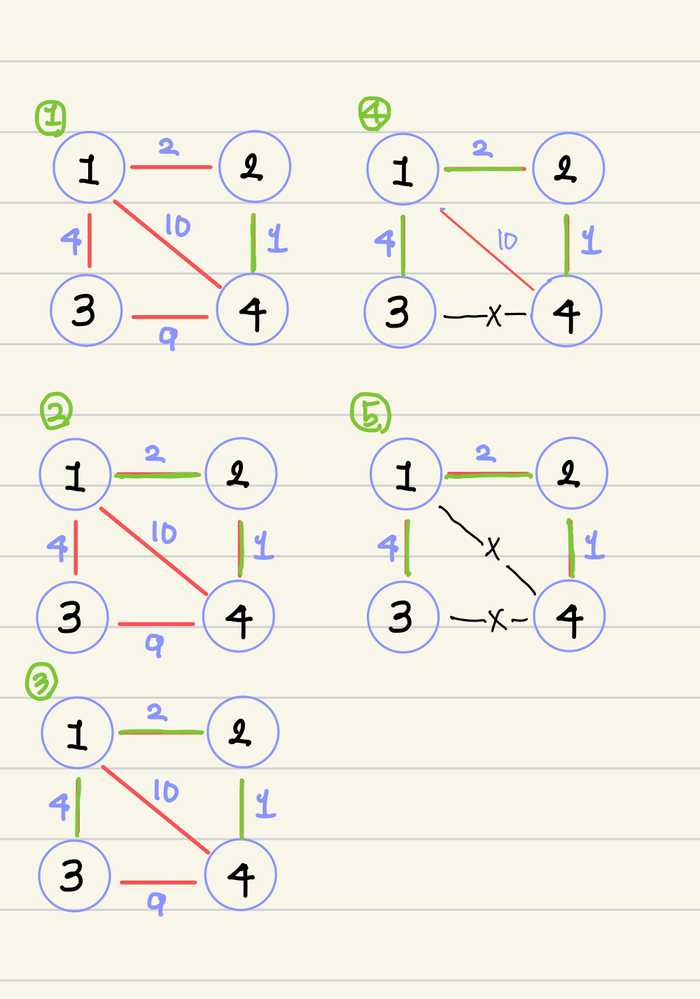 ①
1 2 2
4 10 1
3 9 4
④
1 2 2
4 10 1
3 x 4
②
1 2 2
4 10 1
3 9 4
⑤
1 2 2
4 x 1
3 x 4
③
1 2 2
4 10 1
3 9 4